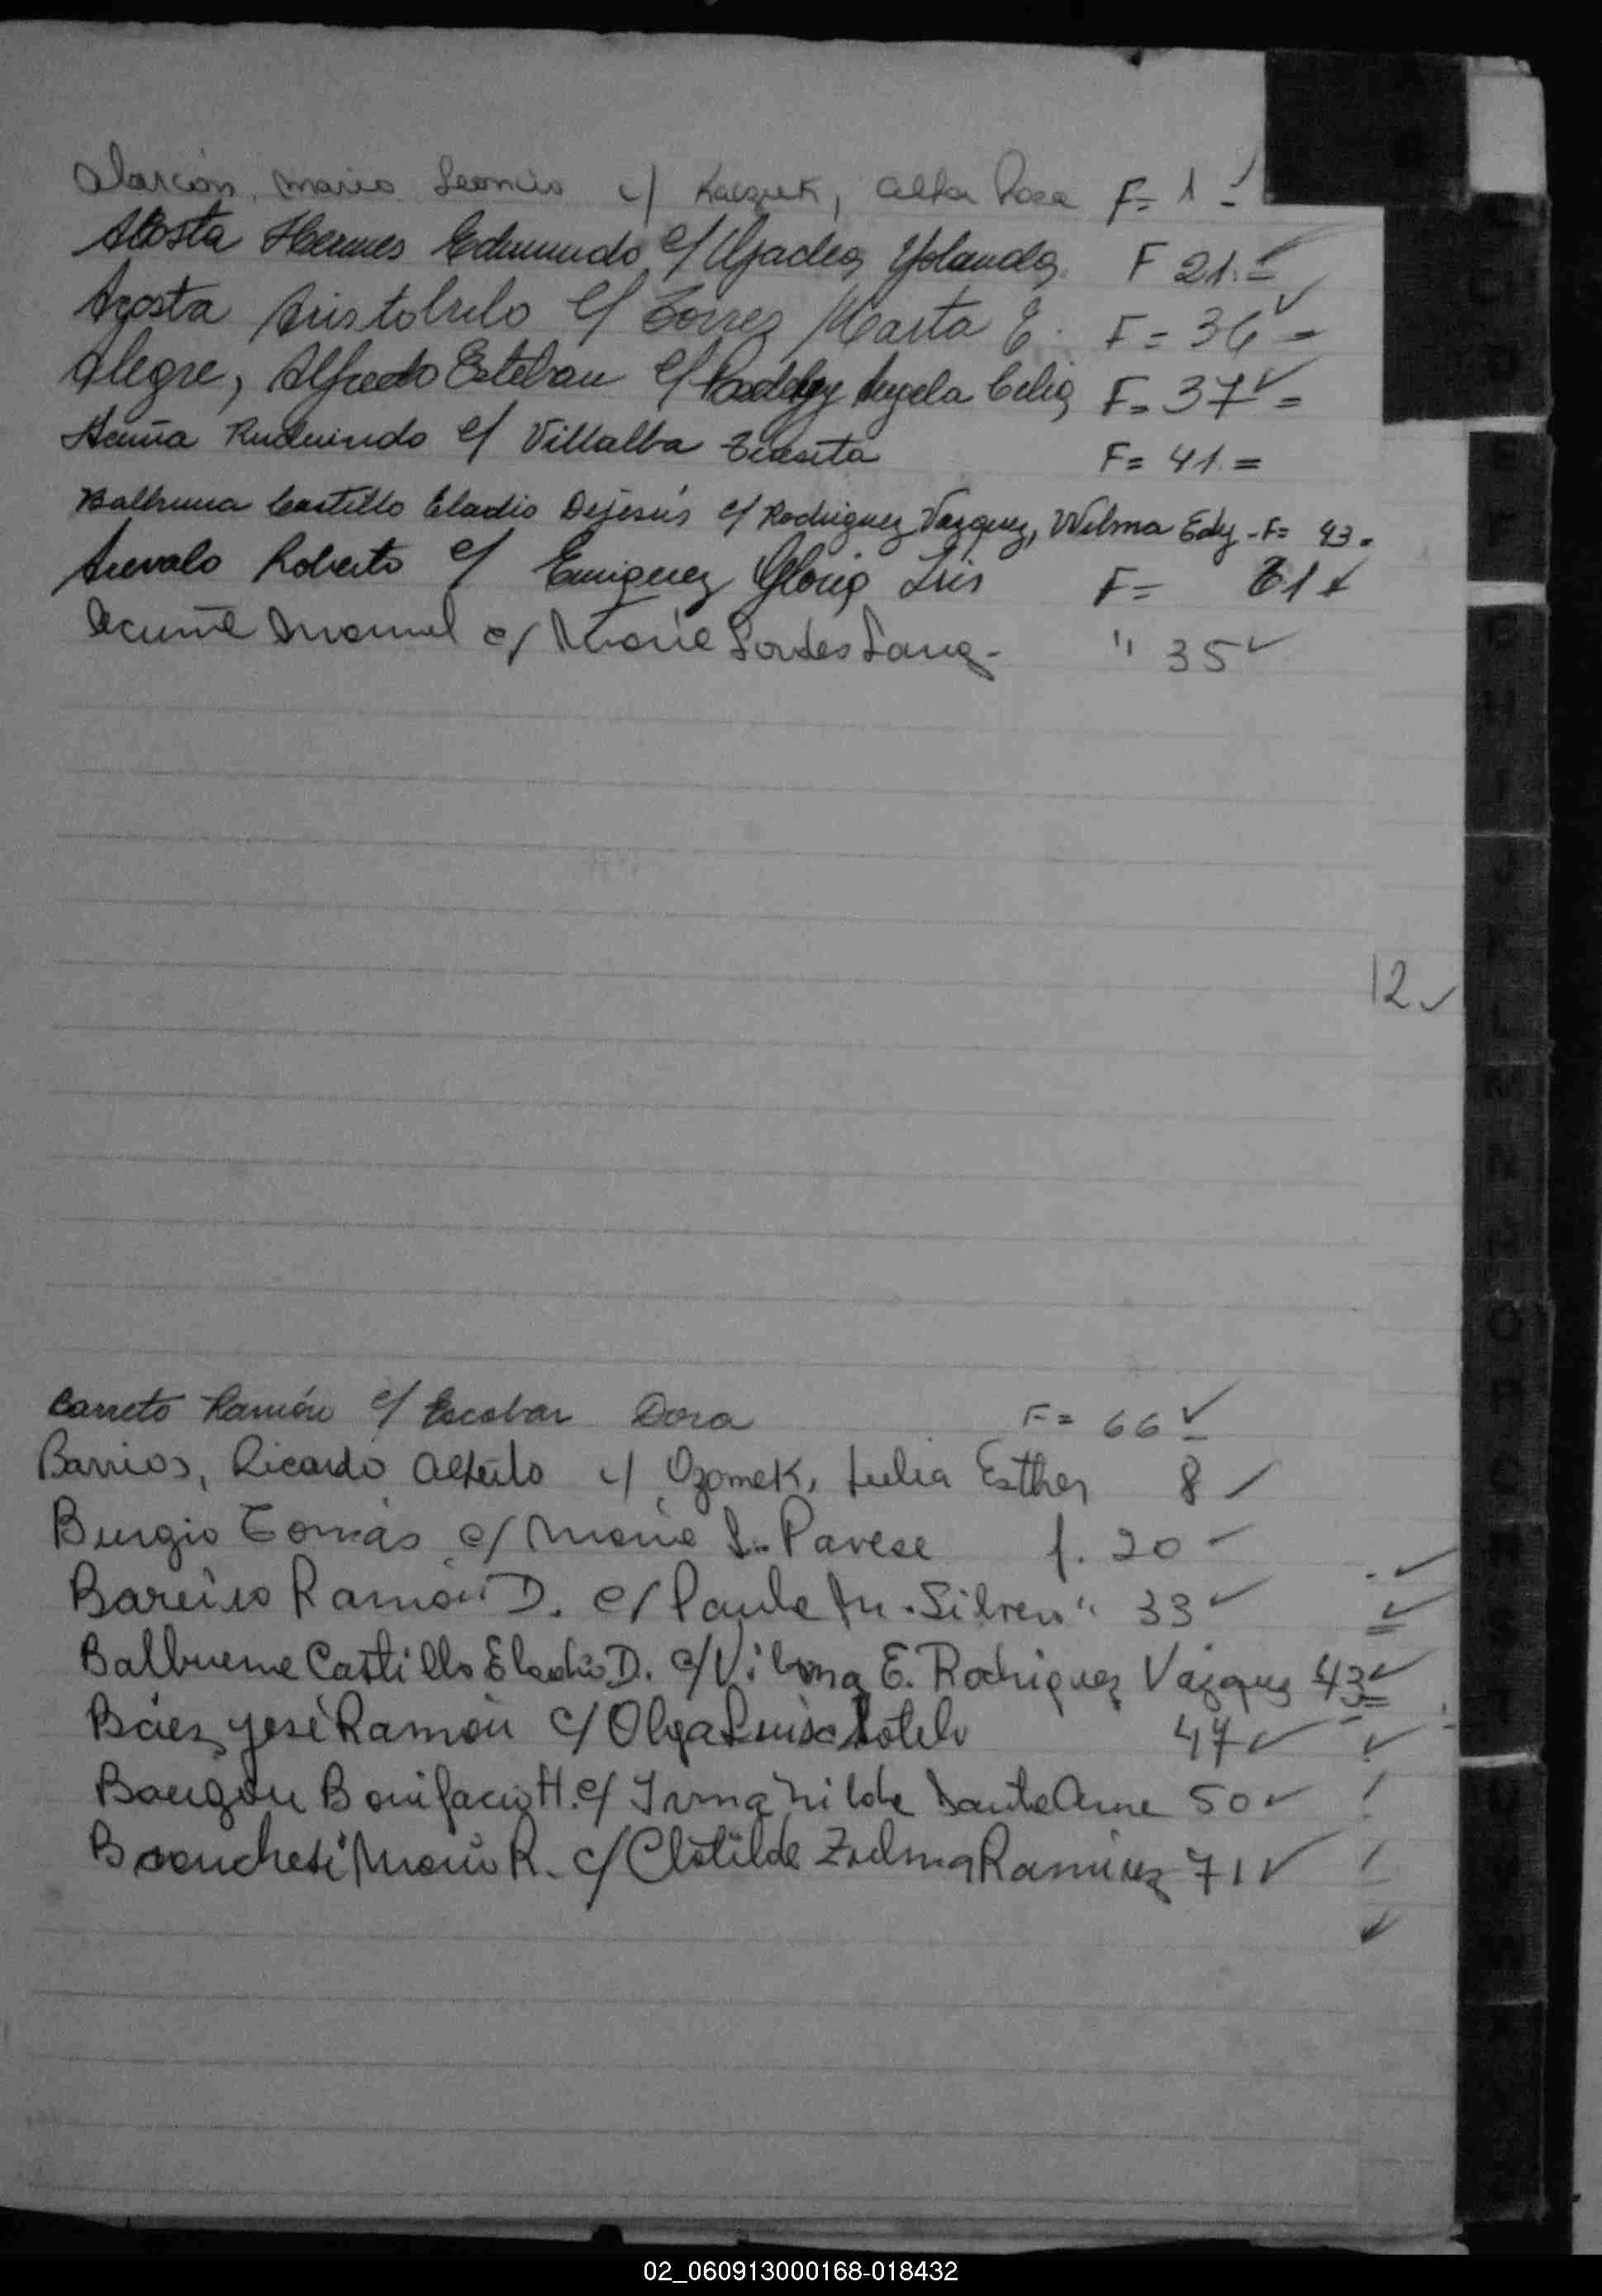 Alarcón, Mario Leoncio c/ Kaczuk, Alba Rosa F= 1 -
Acosta Hermes Edmundo c/ Ojadea Yolanda F 21. =
Acosta Aristobulo c/ Torres Marta E. F = 36 =
Alegre, Alfredo Esteban c/ Angela Celia F= 37 =
Acuña Rudecindo c/ Villalba Teresita F= 41. =
Balbuena Castillo Eladio Dejesús c/ Rodriguez Vazquez, Wilma Edy - F= 43 =
Arevalo Roberto c/ Enriquez Gloria Iris F= 61
Acuña Manuel c/ Maria Lordes Sanz - " 35 ✓
12 ✓
Barreto Ramón c/ Escobar Dora F= 66 ✓
Barrios, Ricardo Alberto c/ Ozomek, Julia Esther 8 ✓
Burgio Tomás c/ Maria L. Pavese f. 20 ✓
Bareiro Ramón D. c/ Paula M. Silveri " 33 ✓
Balbuena Castillo Eladio D. c/ Vilma E. Rodriguez Vázquez 43 ✓
Báez José Ramón c/ Olga Luisa Sotelo 47 ✓
Bonifacio H. c/ Irma Nilda Santa Ana 50 ✓
Mario R. c/ Clotilde Zulma Ramirez 71 ✓
02_060913000168-018432